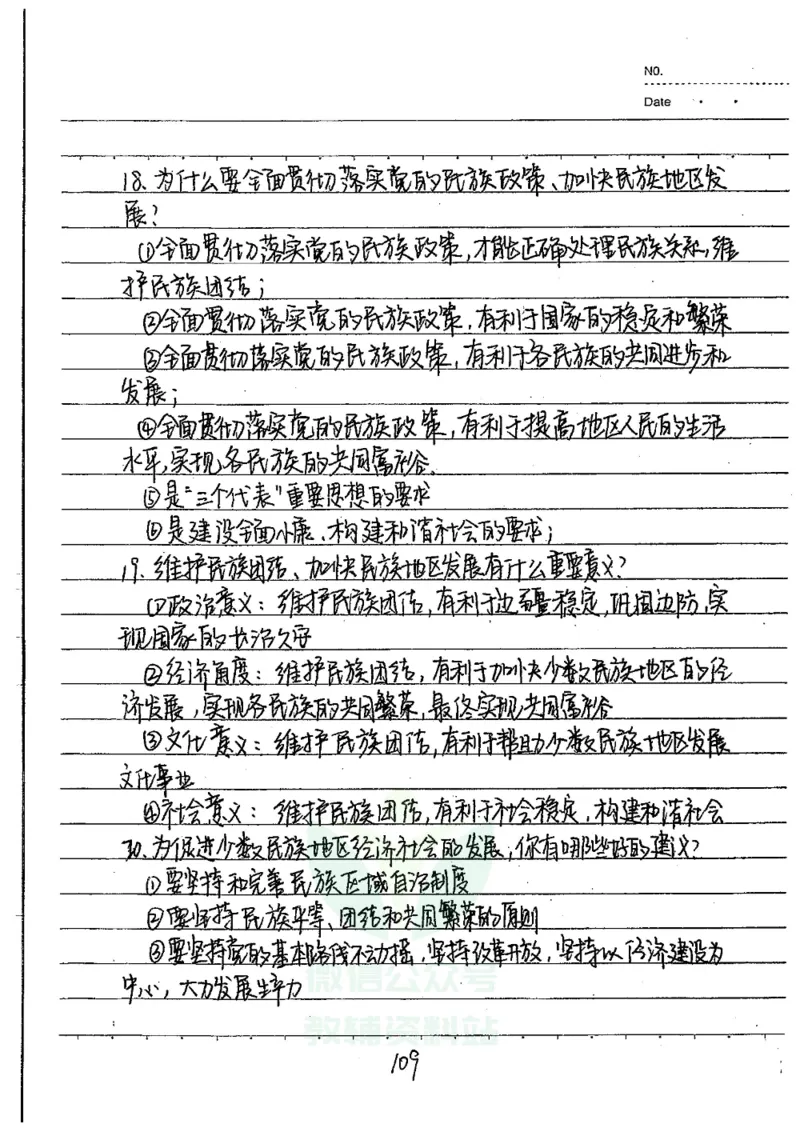 NO.
Date
18、为什么要全面贯彻落实党的民族政策、加快民族地区发
展?
①全面贯彻落实党的民族政策,才能正确处理民族关系,维
护民族团结;
②全面贯彻落实党的民族政策,有利于国家的稳定和繁荣
③全面贯彻落实党的民族政策,有利于各民族的共同进步和
发展;
④全面贯彻落实党的民族政策,有利于提高地区人民的生活
水平,实现各民族的共同富裕.
⑤是“三个代表”重要思想的要求
⑥是建设全面小康、构建和谐社会的要求;
19、维护民族团结、加快民族地区发展有什么重要意义?
①政治意义:维护民族团结,有利于边疆稳定,巩固边防,实
现国家的长治久安
②经济角度:维护民族团结,有利于加快少数民族地区的经
济发展,实现各民族的共同繁荣,最终实现共同富裕
③文化意义:维护民族团结,有利于帮助少数民族地区发展
文化事业
④社会意义:维护民族团结,有利于社会稳定,构建和谐社会
30、为促进少数民族地区经济社会的发展,你有哪些好的建议?
①要坚持和完善民族区域自治制度
②要坚持民族平等、团结和共同繁荣的原则
③要坚持党的基本路线不动摇,坚持改革开放,坚持以经济建设为
中心,大力发展生产力
微信公众号
教辅资料站
109